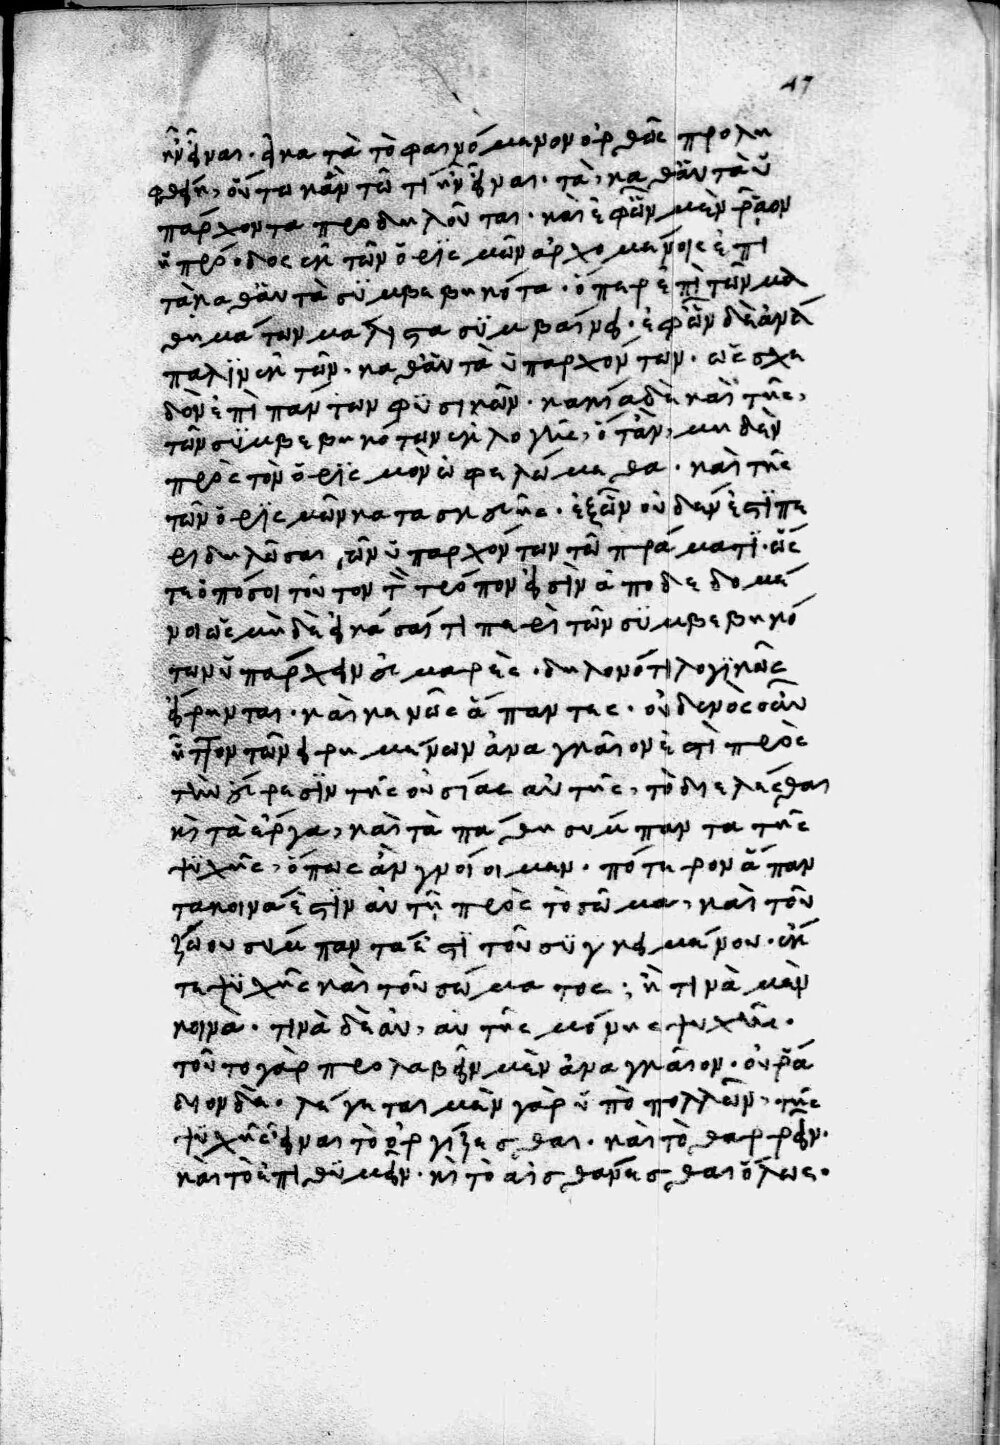 47
ἦν εἶναι. εἰ κατὰ τὸ φαινόμενον ὀρθῶς προλη
φθείη, οὕτω κἂν τῶ τί ἦν εἶναι. τὰ, καθ' αὑτὰ ὑ
πάρχοντα προδηλοῦται. καὶ ἐφ' ὧν μὲν ῥᾶον
ἡ πρόοδος ἐκ τῶν ὁρισμῶν ἀρχομένοις ἐπὶ
τὰ καθ' αὑτὰ συμβεβηκότα. ὅπερ ἐπὶ τῶν μα
θημάτων μάλιστα συμβαίνει. ἐφ' ὧν δὲ ἀνά
παλιν ἐκ τῶν. καθ' αὑτὰ ὑπαρχόντων. ὡς σχε
δὸν ἐπὶ πάντων φυσικῶν. κακία δὲ καὶ τῆς,
τῶν συμβεβηκότων ἐκλογῆς, ὅταν, μηδὲν
πρὸς τὸν ὁρισμὸν ὠφελώμεθα. καὶ τῆς
τῶν ὁρισμῶν κατασκευῆς. ἐξ ὧν οὐδέν ἐστι πε
ριδηλῶσαι, τῶν ὑπαρχόντων τῶ πράματι. ὥς
τε ὁπόσοι τοῦτον τὸν τρόπον εἰσὶν ἀποδεδομέ
νοι ὡς μὴ δὲ εἰκάσαι τί περὶ τῶν συμβεβηκό
των ὑπάρχειν εὐμαρές. δηλονότι λογικῶς
εἴρηνται. καὶ κενῶς ἅπαντες. οὐδενὸς οὖν
ἧττον τῶν εἰρημένων ἀναγκαῖον ἐστὶ πρὸς
τὴν εὕρεσιν τῆς οὐσίας αὐτῆς, τὸ διελέσθαι
καὶ τὰ ἔργα, καὶ τὰ πάθη σύμπαντα τῆς
ψυχῆς, ὅπως ἂν γνοίοιμεν. πότερον ἅπαν
τα κοινά ἐστιν αὐτῇ πρὸς τὸ σῶμα, καὶ τοῦ
ζώου σύμπαντά ἐστι τοῦ συγκειμένου. ἔκ
τε ψυχῆς καὶ τοῦ σώματος; ἢ τινὰ μὲν
κοινὰ. τινὰ δὲ ἂν, αὐτῆς μόνης ψυχῆς.
τοῦτο γὰρ προλαβεῖν μὲν ἀναγκαῖον. οὐ ῥά
διον δὲ. λέγεται μὲν γὰρ ὑπὸ πολλῶν, τῆς
ψυχῆς εἶναι τὸ ὀργίζεσθαι. καὶ τὸ θαρρεῖν.
καὶ τὸ ἐπιθυμεῖν. καὶ τὸ αἰσθάνεσθαι ὅλως.